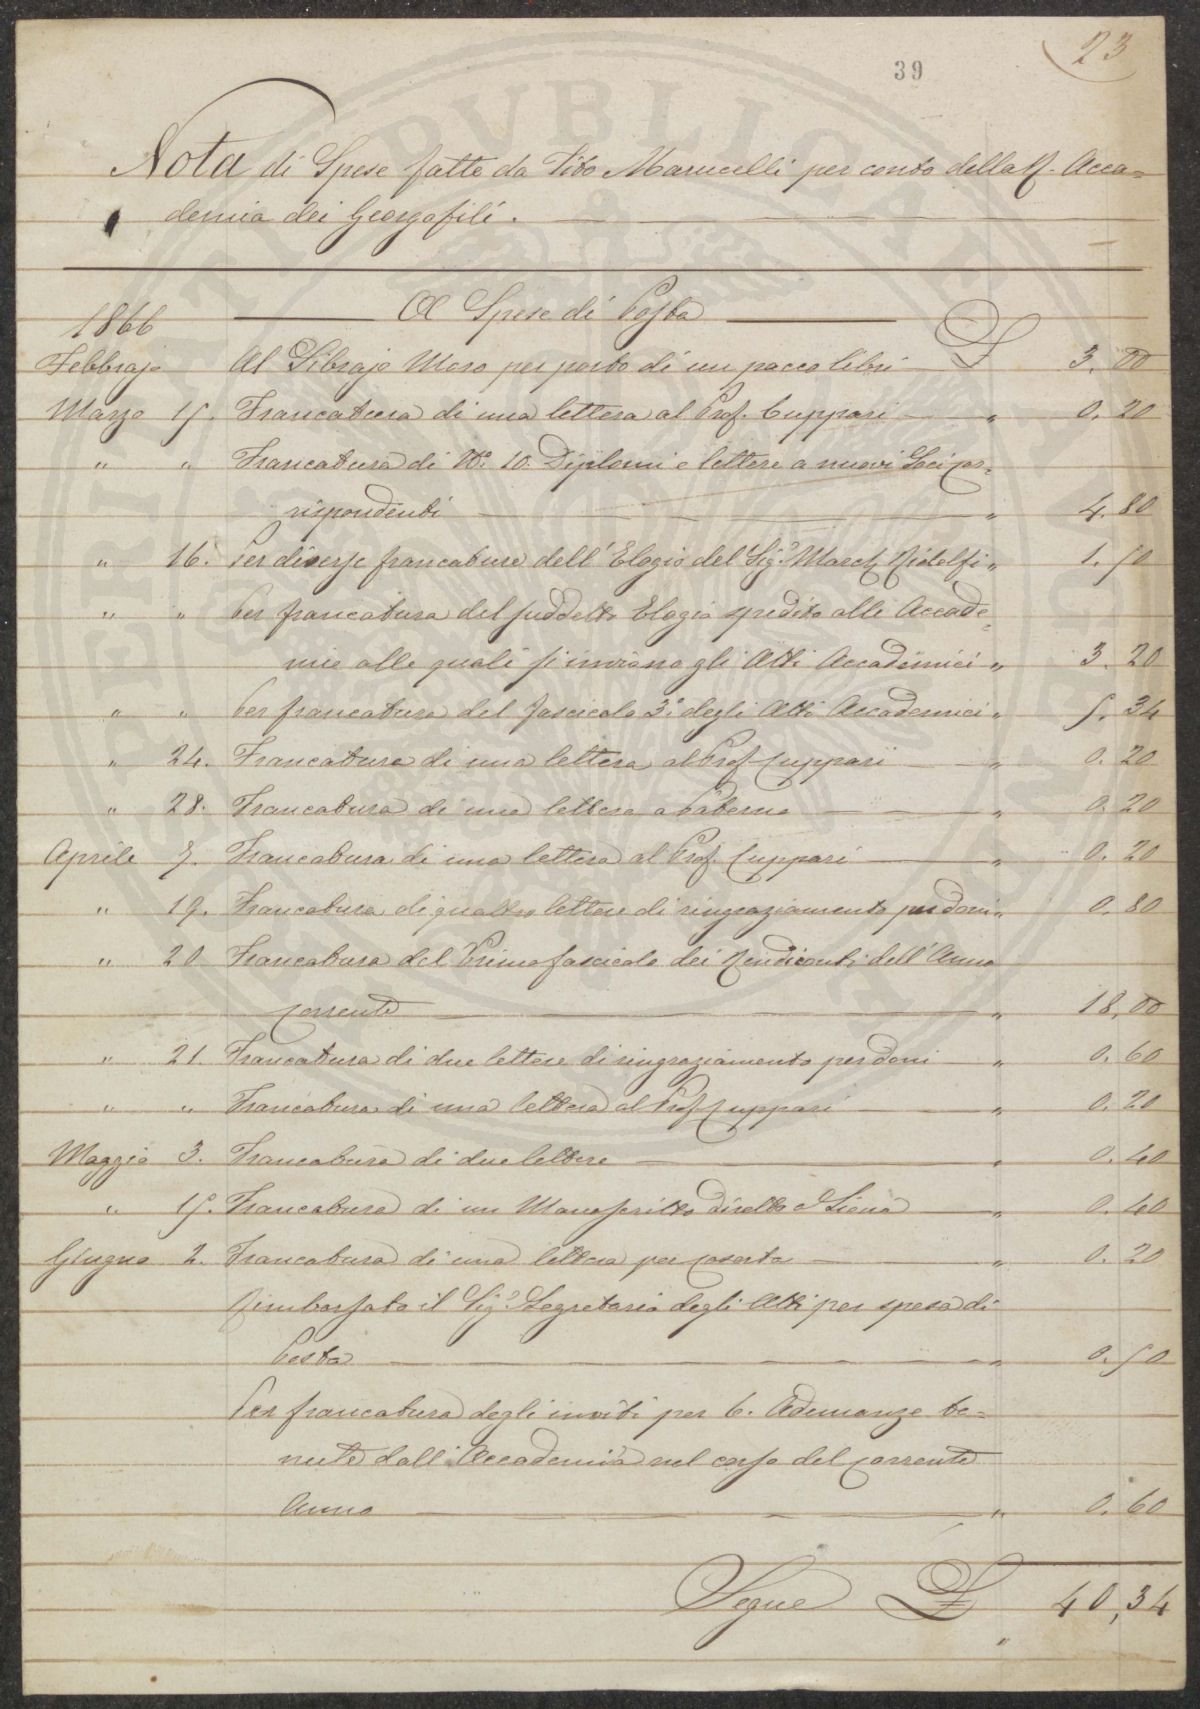 23
39
Nota di Spese fatte da Tito Marucelli per conto della R. Acca=
demia dei Georgofili.
A Spese di Posta
1866
Febbrajo Al Librajo Moro per porto di un pacco libri £ 3. 00
Marzo 15. Francatura di una lettera al Prof. Cuppari " 0. 20
" " Francatura di N.° 10. Diplomi e lettere a nuovi Soci cor=
rispondenti " 4. 80
" 16. Per diverse francature dell'Elogio del Sig.r March. Ridolfi " 1. 50
" " Per francatura del suddetto Elogio spedito alle Accade=
mie alle quali si inviano gli Atti Accademici " 3. 20
" " Per francatura del fascicolo 3.° degli Atti Accademici " 5. 34
" 24. Francatura di una lettera al Prof. Cuppari " 0. 20
" 28. Francatura di una lettera a Palermo " 0. 20
Aprile 7. Francatura di una lettera al Prof. Cuppari " 0. 20
" 19. Francatura di quattro lettere di ringraziamento per doni " 0. 80
" 20 Francatura del Primo fascicolo dei Rendiconti dell'Anno
corrente " 18, 00
" 21. Francatura di due lettere di ringraziamento per doni " 0. 60
" " Francatura di una lettera al Prof. Cuppari " 0. 20
Maggio 3. Francatura di due lettere " 0. 40
" 15. Francatura di un Manoscritto diretto a Siena " 0. 40
Giugno 2. Francatura di una lettera per Caserta " 0. 20
Rimborsato il Sig.r Segretario degli Atti per spesa di
Posta " 0. 50
Per francatura degli inviti per 6. Adunanze te=
nute dall'Accademia nel corso del corrente
Anno " 0. 60
Segue £ 40, 34
"